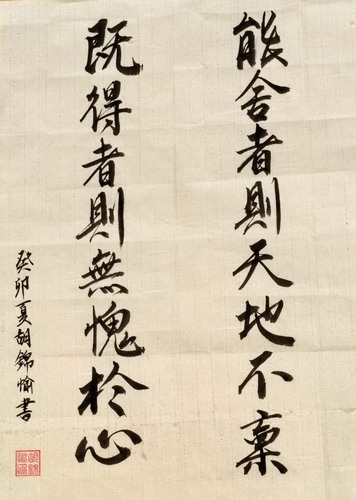 能舍者則天地不棄
既得者則無愧於心
癸卯夏胡錦愉書